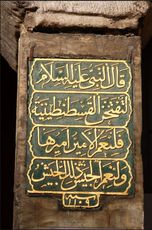 قال النبي عليه السلام
لتفتحن القسطنطينية
فلنعم الأمير أميرها
ولنعم الجيش ذلك الجيش